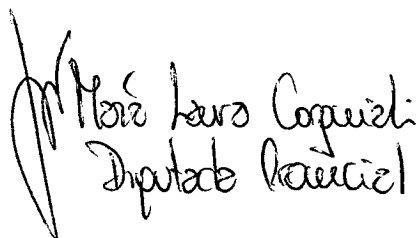 María Laura Corgniali
Diputada Provincial